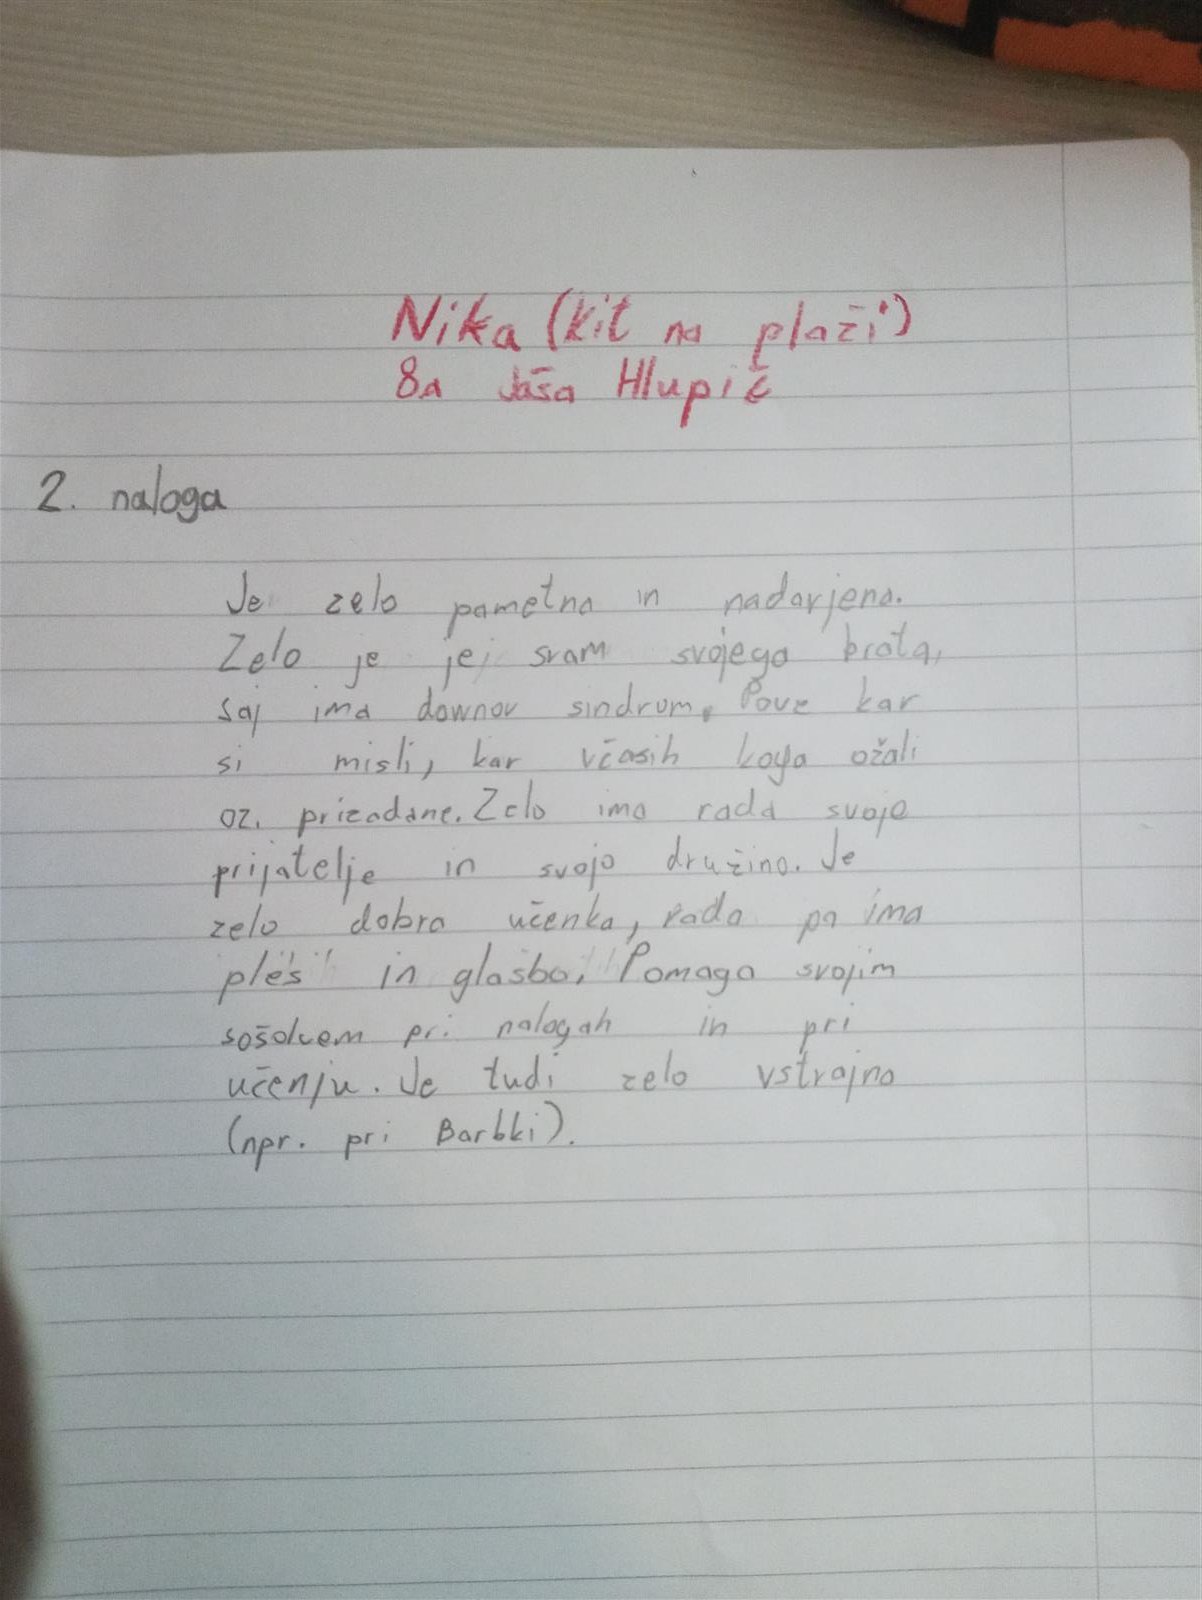 Nika (Kit na plaži)
8a Jaša Hlupič
2. naloga
Je zelo pametna in nadarjena.
Zelo je jej sram svojega brata,
saj ima downov sindrom. Pove kar
si misli, kar včasih koga ožali
oz. prizadane. Zelo ima rada svoje
prijatelje in svojo družino. Je
zelo dobra učenka, rada pa ima
ples in glasbo. Pomaga svojim
sošolcem pri nalogah in pri
učenju. Je tudi zelo vstrajna
(npr. pri Barbki).